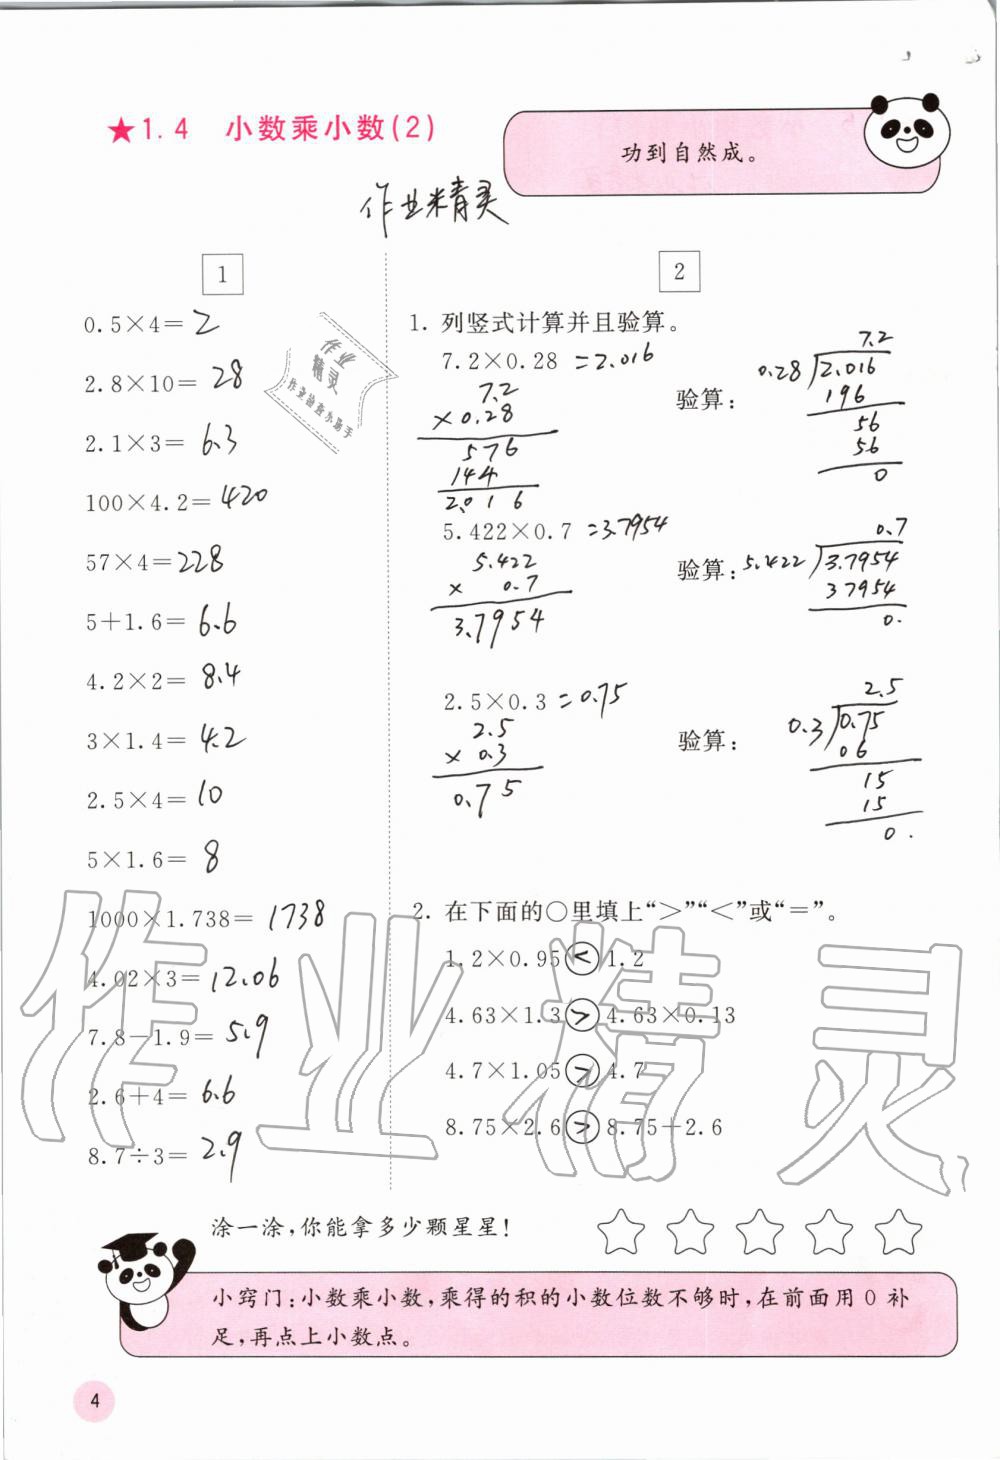 ★1.4 小数乘小数(2)
功到自然成。
作业精灵
1
0.5×4=2
2.8×10=28
2.1×3=6.3
100×4.2=420
57×4=228
5+1.6=6.6
4.2×2=8.4
3×1.4=4.2
2.5×4=10
5×1.6=8
1000×1.738=1738
4.02×3=12.06
7.8-1.9=5.9
2.6+4=6.6
8.7÷3=2.9
作业
精灵
作业检查小助手
2
1. 列竖式计算并且验算。
7.2×0.28=2.016
7.2
×0.28
576
144
2.016
验算:
7.2
0.28 2.016
196
56
56
0
5.422×0.7=3.7954
5.422
× 0.7
3.7954
验算:
0.7
5.422 3.7954
37954
0.
2.5×0.3=0.75
2.5
×0.3
0.75
验算:
2.5
0.3 0.75
06
15
15
0.
2. 在下面的○里填上“>”“<”或“=”。
1.2×0.95<1.2
4.63×1.3>4.63×0.13
4.7×1.05>4.7
8.75×2.6>8.75+2.6
作业精灵
涂一涂,你能拿多少颗星星!
小窍门:小数乘小数,乘得的积的小数位数不够时,在前面用0补
足,再点上小数点。
4